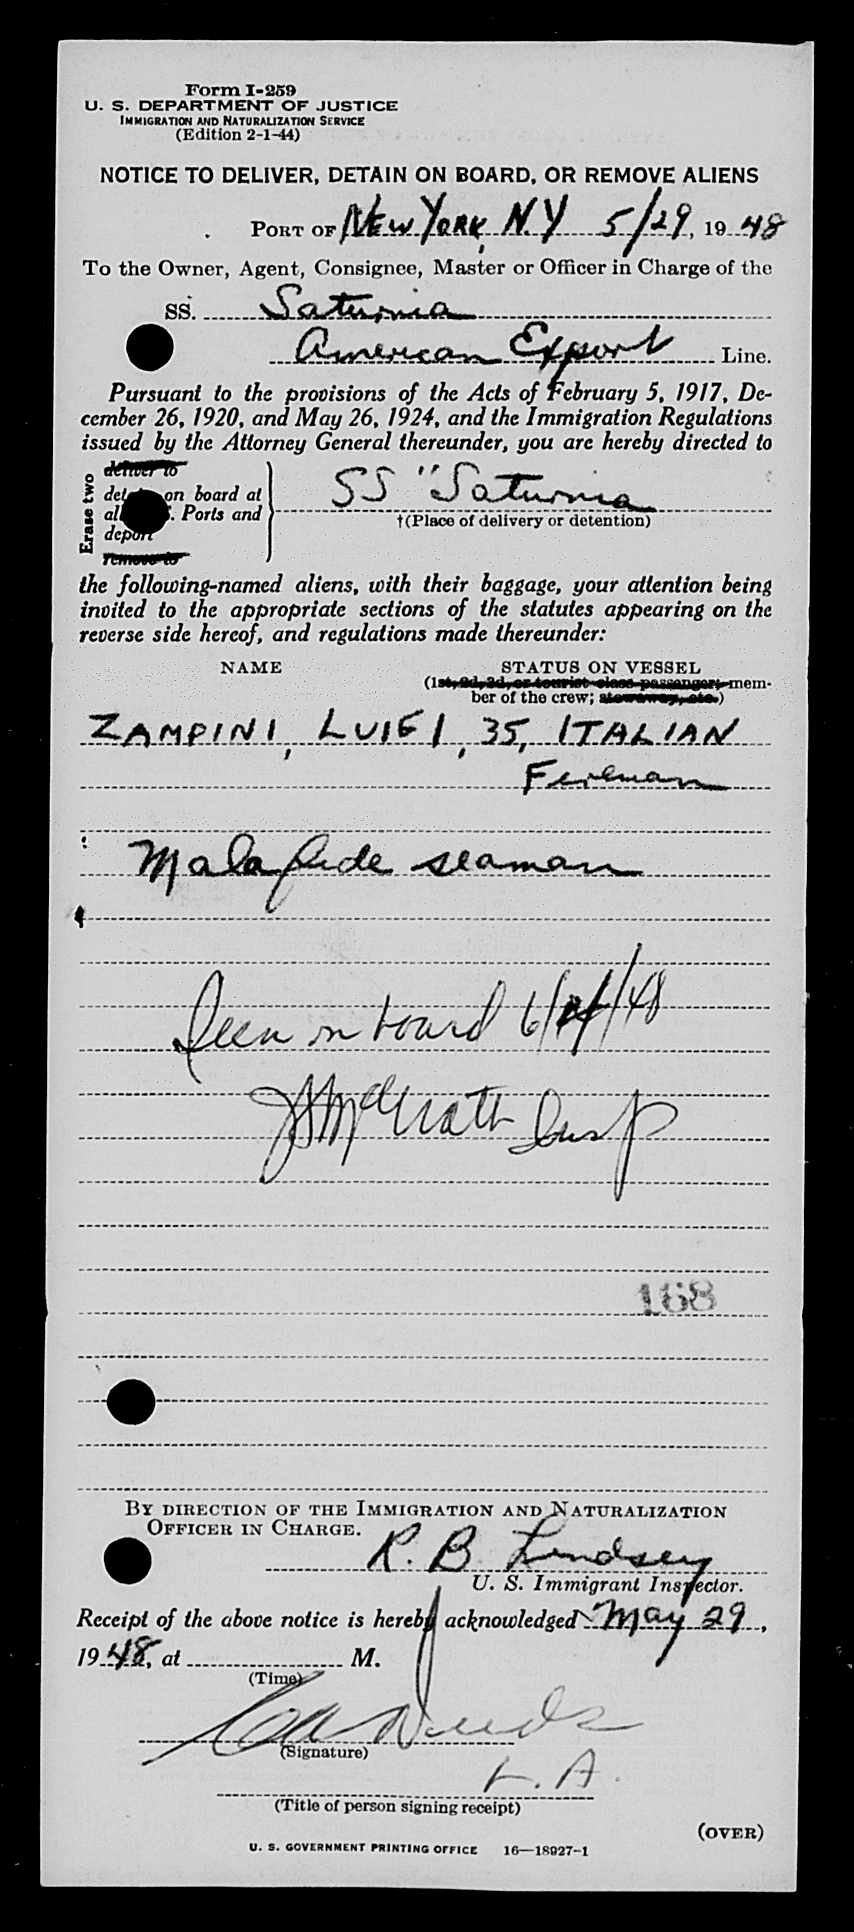 Form I-259
U. S. DEPARTMENT OF JUSTICE
IMMIGRATION AND NATURALIZATION SERVICE
(Edition 2-1-44)
NOTICE TO DELIVER, DETAIN ON BOARD, OR REMOVE ALIENS
PORT OF New York, N.Y 5/29, 19 48
To the Owner, Agent, Consignee, Master or Officer in Charge of the
SS. Saturnia
American Export Line.
Pursuant to the provisions of the Acts of February 5, 1917, De-
cember 26, 1920, and May 26, 1924, and the Immigration Regulations
issued by the Attorney General thereunder, you are hereby directed to
Erase two
deliver to
on board at
Ports and
deport
remove to
SS "Saturnia
†(Place of delivery or detention)
the following-named aliens, with their baggage, your attention being
invited to the appropriate sections of the statutes appearing on the
reverse side hereof, and regulations made thereunder:
NAME STATUS ON VESSEL
(1st, 2d, 3d, or tourist class passenger; mem-
ber of the crew; stowaway, etc.)
ZAMPINI, LUIGI, 35, ITALIAN
Fireman
Mala fide seaman
Seen on board 6/ /48
McGrath Insp
168
BY DIRECTION OF THE IMMIGRATION AND NATURALIZATION
OFFICER IN CHARGE.
R. B. Lindsey
U. S. Immigrant Inspector.
Receipt of the above notice is hereby acknowledged May 29,
19 48, at M.
(Time)
(Signature)
(Title of person signing receipt)
(OVER)
U. S. GOVERNMENT PRINTING OFFICE 16—18927-1